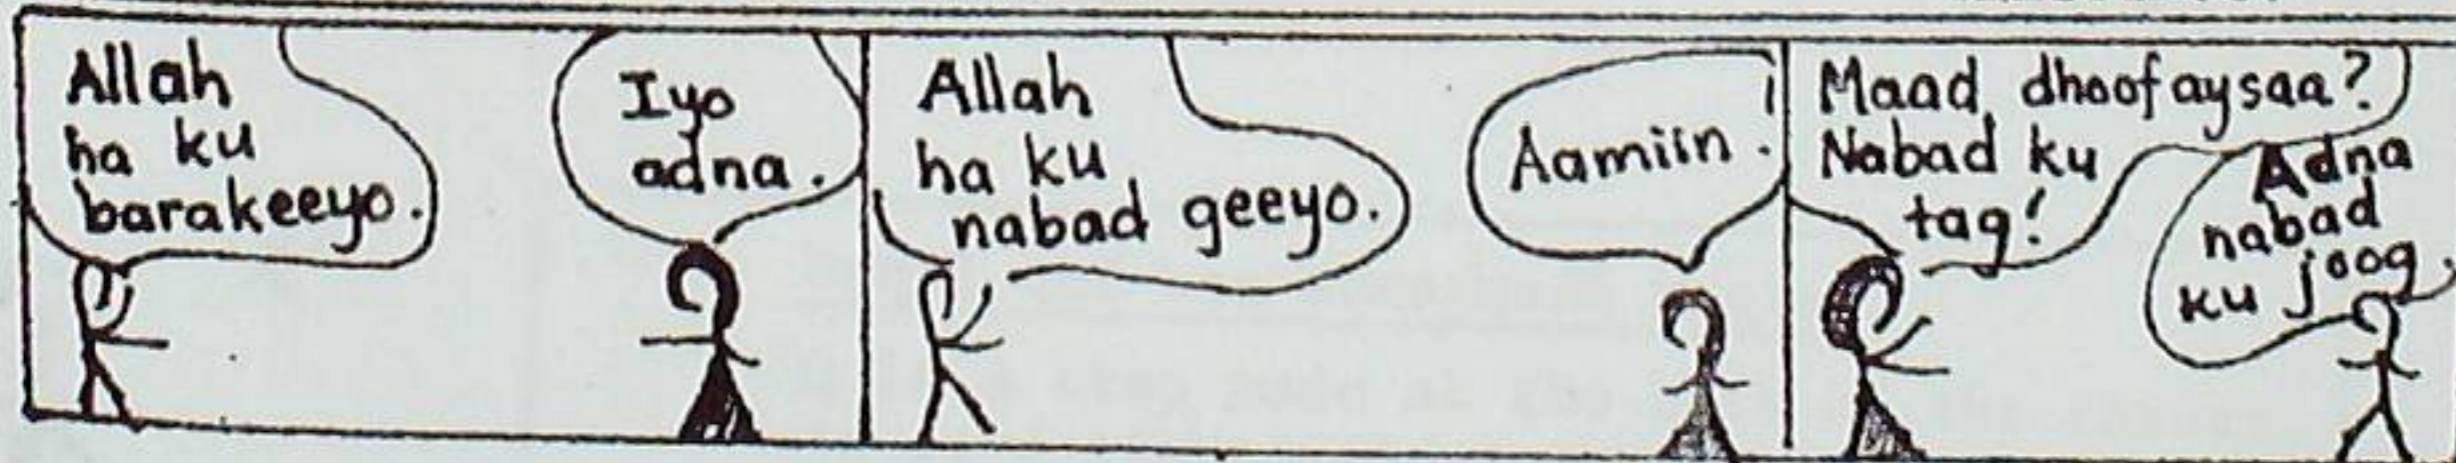 Allah
ha ku
barakeeyo.
Iyo
adna.
Allah
ha ku
nabad geeyo.
Aamiin.
Maad dhoofaysaa?
Nabad ku
tag!
Adna
nabad
ku joog.